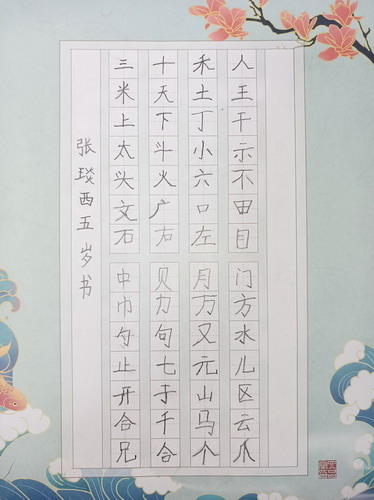 人王干示不田目
门方水儿区云爪
禾土丁小六口左
月万又元山马个
十天下斗火广右
贝力句七于千合
三米上太头文石
中巾勺止开合兄
张琰西五岁书